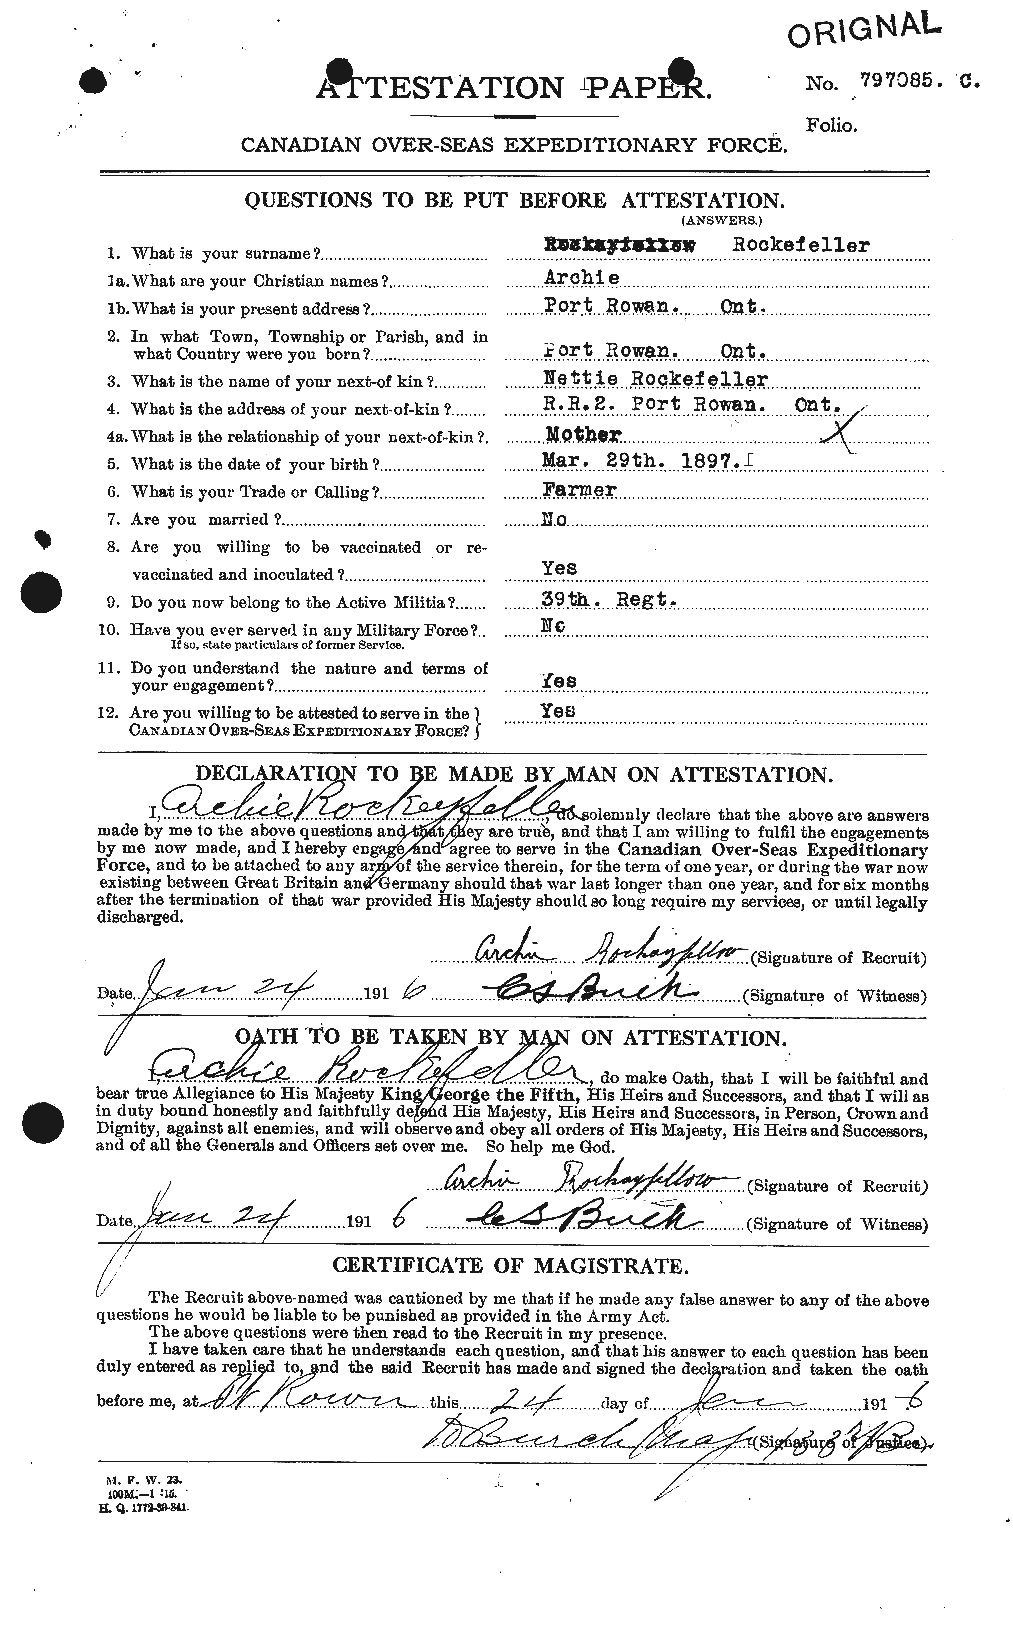 ORIGNAL
ATTESTATION PAPER.
No. 797085. C.
Folio.
CANADIAN OVER-SEAS EXPEDITIONARY FORCE.
QUESTIONS TO BE PUT BEFORE ATTESTATION.
(ANSWERS.)
1. What is your surname? Rockefeller
1a. What are your Christian names? Archie
1b. What is your present address? Port Rowan. Ont.
2. In what Town, Township or Parish, and in
what Country were you born? Port Rowan. Ont.
3. What is the name of your next-of kin? Nettie Rockefeller
4. What is the address of your next-of-kin? R.R.2. Port Rowan. Ont.
4a. What is the relationship of your next-of-kin? Mother X
5. What is the date of your birth? Mar. 29th. 1897.
6. What is your Trade or Calling? Farmer
7. Are you married? No
8. Are you willing to be vaccinated or re-
vaccinated and inoculated? Yes
9. Do you now belong to the Active Militia? 39th. Regt.
10. Have you ever served in any Military Force? No
If so, state particulars of former Service.
11. Do you understand the nature and terms of
your engagement? Yes
12. Are you willing to be attested to serve in the Yes
CANADIAN OVER-SEAS EXPEDITIONARY FORCE?
DECLARATION TO BE MADE BY MAN ON ATTESTATION.
I, Archie Rockeyfeller, do solemnly declare that the above are answers
made by me to the above questions and that they are true, and that I am willing to fulfil the engagements
by me now made, and I hereby engage and agree to serve in the Canadian Over-Seas Expeditionary
Force, and to be attached to any arm of the service therein, for the term of one year, or during the war now
existing between Great Britain and Germany should that war last longer than one year, and for six months
after the termination of that war provided His Majesty should so long require my services, or until legally
discharged.
Archie Rockayfellow (Signature of Recruit)
Date Jan 24 1916 CS Buck (Signature of Witness)
OATH TO BE TAKEN BY MAN ON ATTESTATION.
I, Archie Rockefeller, do make Oath, that I will be faithful and
bear true Allegiance to His Majesty King George the Fifth, His Heirs and Successors, and that I will as
in duty bound honestly and faithfully defend His Majesty, His Heirs and Successors, in Person, Crown and
Dignity, against all enemies, and will observe and obey all orders of His Majesty, His Heirs and Successors,
and of all the Generals and Officers set over me. So help me God.
Archie Rockayfellow (Signature of Recruit)
Date Jan 24 1916 CS Buck (Signature of Witness)
CERTIFICATE OF MAGISTRATE.
The Recruit above-named was cautioned by me that if he made any false answer to any of the above
questions he would be liable to be punished as provided in the Army Act.
The above questions were then read to the Recruit in my presence.
I have taken care that he understands each question, and that his answer to each question has been
duly entered as replied to, and the said Recruit has made and signed the declaration and taken the oath
before me, at Pt Rowan this 24 day of Jan 1916
(Signature of Justice)
M. F. W. 23.
100M.—1-15.
H. Q. 1772-39-841.